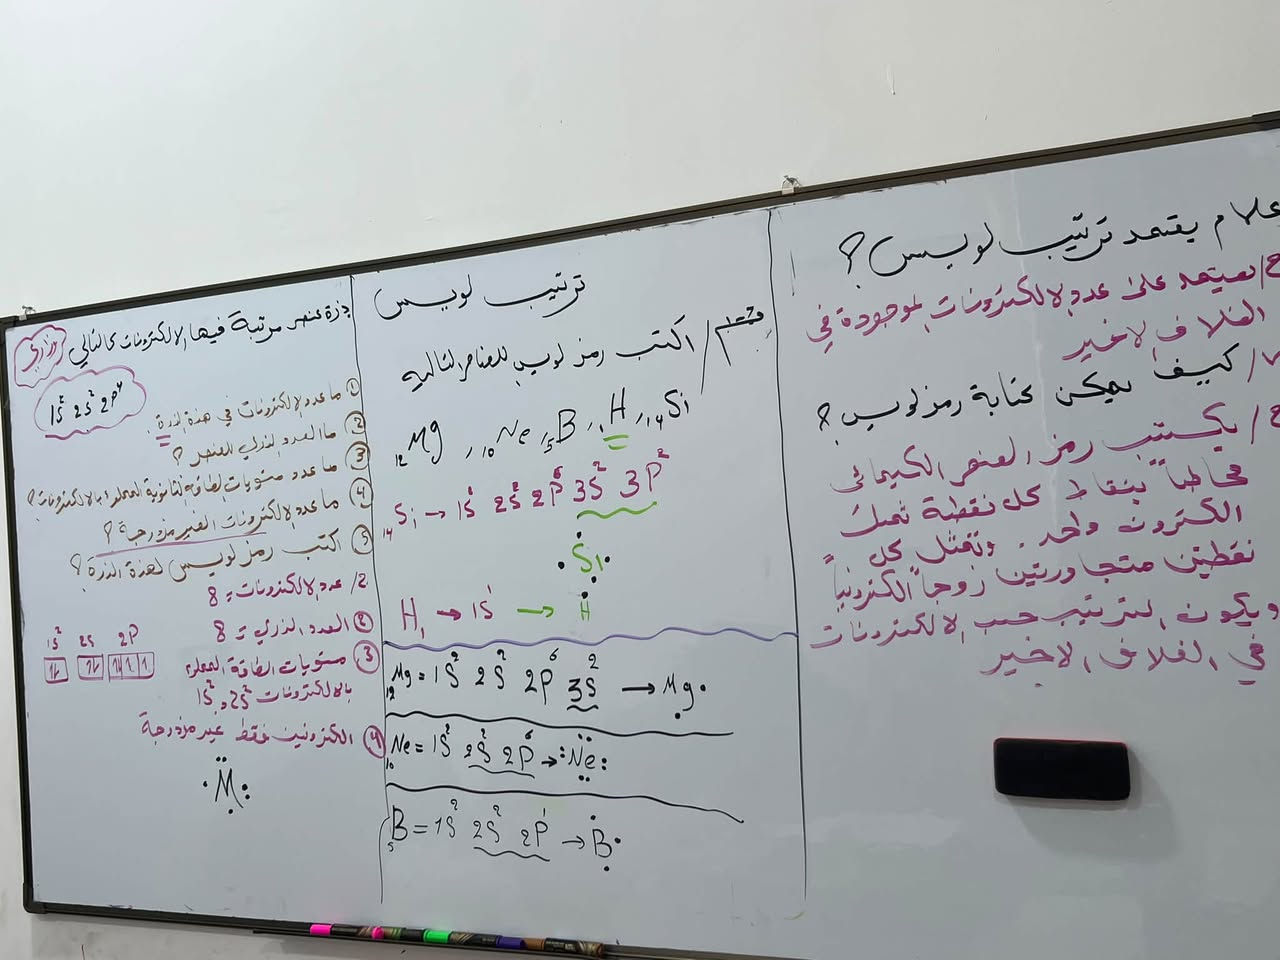 علام يعتمد ترتيب لويس ؟
ج/ يعتمد على عدد الالكترونات الموجودة في
الغلاف الاخير
س/ كيف يمكن كتابة رمز لويس ؟
ج/ يكتب رمز العنصر الكيميائي
محاطاً بنقاط كل نقطة تمثل
الكترون واحد . وتمثل كل
نقطتين متجاورتين زوجاً الكترونياً
ويكون الترتيب حسب الالكترونات
في الغلاف الاخير
ترتيب لويس
اكتب رمز لويس للعناصر التالية
₁₂Mg , ₁₀Ne , ₅B , ₁H , ₁₄Si
₁₄Si → 1S² 2S² 2P⁶ 3S² 3P²
Si
H₁ → 1S¹ → H
₁₂Mg = 1S² 2S² 2P⁶ 3S² → Mg
₁₀Ne = 1S² 2S² 2P⁶ → Ne
₅B = 1S² 2S² 2P¹ → B
ذرة عنصر مرتبة فيها الالكترونات كالتالي
وزاري
1S² 2S² 2P⁴
① ما عدد الالكترونات في هذة الذرة ؟
② ما العدد الذري للعنصر ؟
③ ما عدد مستويات الطاقة الثانوية المملوءة بالالكترونات ؟
④ ما عدد الالكترونات الغير مزدوجة ؟
⑤ اكتب رمز لويس لهذة الذرة ؟
ج/ عدد الالكترونات = 8
② العدد الذري = 8
③ مستويات الطاقة المملوءة
بالالكترونات 1S² و 2S²
1S² 2S 2P
④ الكترونين فقط غير مزدوجة
M